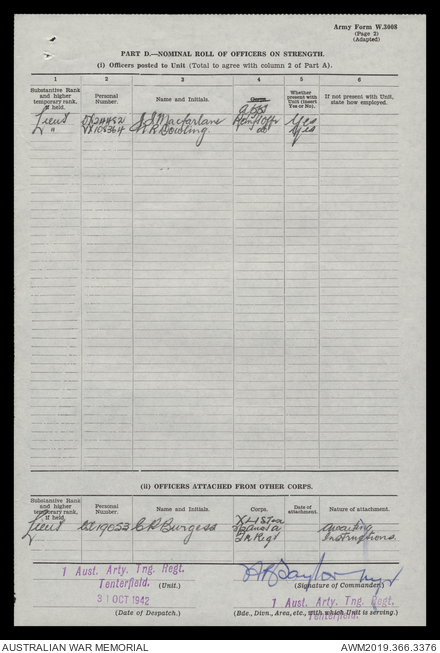 Army Form W.3008
(Page 2)
(Adapted)
PART D.—NOMINAL ROLL OF OFFICERS ON STRENGTH.
(i) Officers posted to Unit (Total to agree with column 2 of Part A).
1 2 3 4 5 6
Substantive Rank and higher temporary rank, if held. Personal Number. Name and Initials. Whether present with Unit (insert Yes or No). If not present with Unit, state how employed.
Lieut Macfarlane Yes
" Dowling do Yes
(ii) OFFICERS ATTACHED FROM OTHER CORPS.
Substantive Rank and higher temporary rank, if held. Personal Number. Name and Initials. Corps. Date of attachment. Nature of attachment.
Lieut 19053 C R Burgess Awaiting
Tn Regt Instructions.
1 Aust. Arty. Tng. Regt.
Tenterfield. (Unit.)
(Signature of Commander)
31 OCT 1942
1 Aust. Arty. Tng. Regt.
Tenterfield.
(Date of Despatch.) (Bde., Divn., Area, etc., with which Unit is serving.)
AUSTRALIAN WAR MEMORIAL AWM2019.366.3376